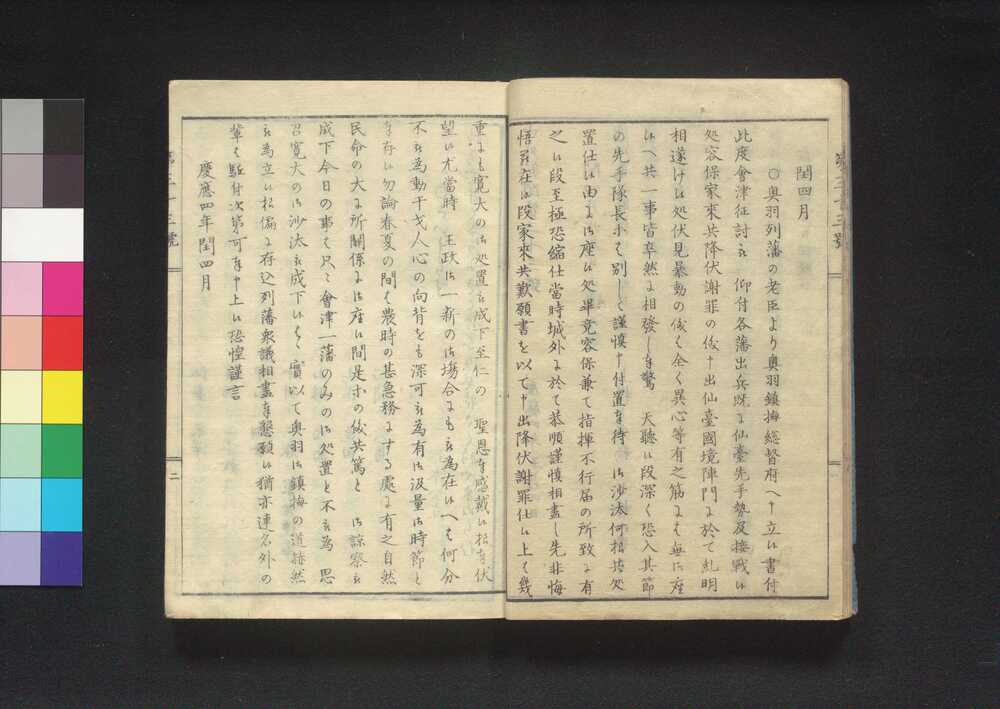 閏四月
○奥羽列藩の老臣より奥羽鎮撫総督府へ申立候書付
此度會津征討被 仰付各藩出兵既に仙臺先手勢及接戦候
処容保家来共降伏謝罪の儀申出仙臺國境陣門に於て糺明
相遂け候処伏見暴動の儀は全く異心等有之筋には無御座
候へ共一事皆卒然に相發し奉驚 天聽候段深く恐入其節
の先手隊長等は別して謹慎申付置奉待 御沙汰何松共処
置仕候由に御座候処畢竟容保兼て指揮不行届の所致に有
之候段至極恐縮仕當時城外に於て恭順謹慎相盡し先非悔
悟罷在候段家来共歎願書を以て申出降伏謝罪仕候上は幾
重にも寛大の御処置被成下至仁の 聖恩奉感戴候松奉伏
望候尤當時 王政御一新の御場合にも被為在候へは何分
不被為動干戈人心の向背をも深可被為有御汲量御時節と
奉存候勿論春夏の間は農時の甚急務にする處に有之自然
民命の大に所關係に御座候間是等の儀共篤と 御諒察被
成下今日の事は只々會津一藩のみの御処置と不被為 思
召寛大の御沙汰被成下候はゝ實以て奥羽御鎮撫の道赫然
被為立候松儀に存込列藩衆議相盡奉懇願候猶亦連名外の
輩は駈付次第可奉申上候恐惶謹言
慶應四年閏四月
第三十三號
二